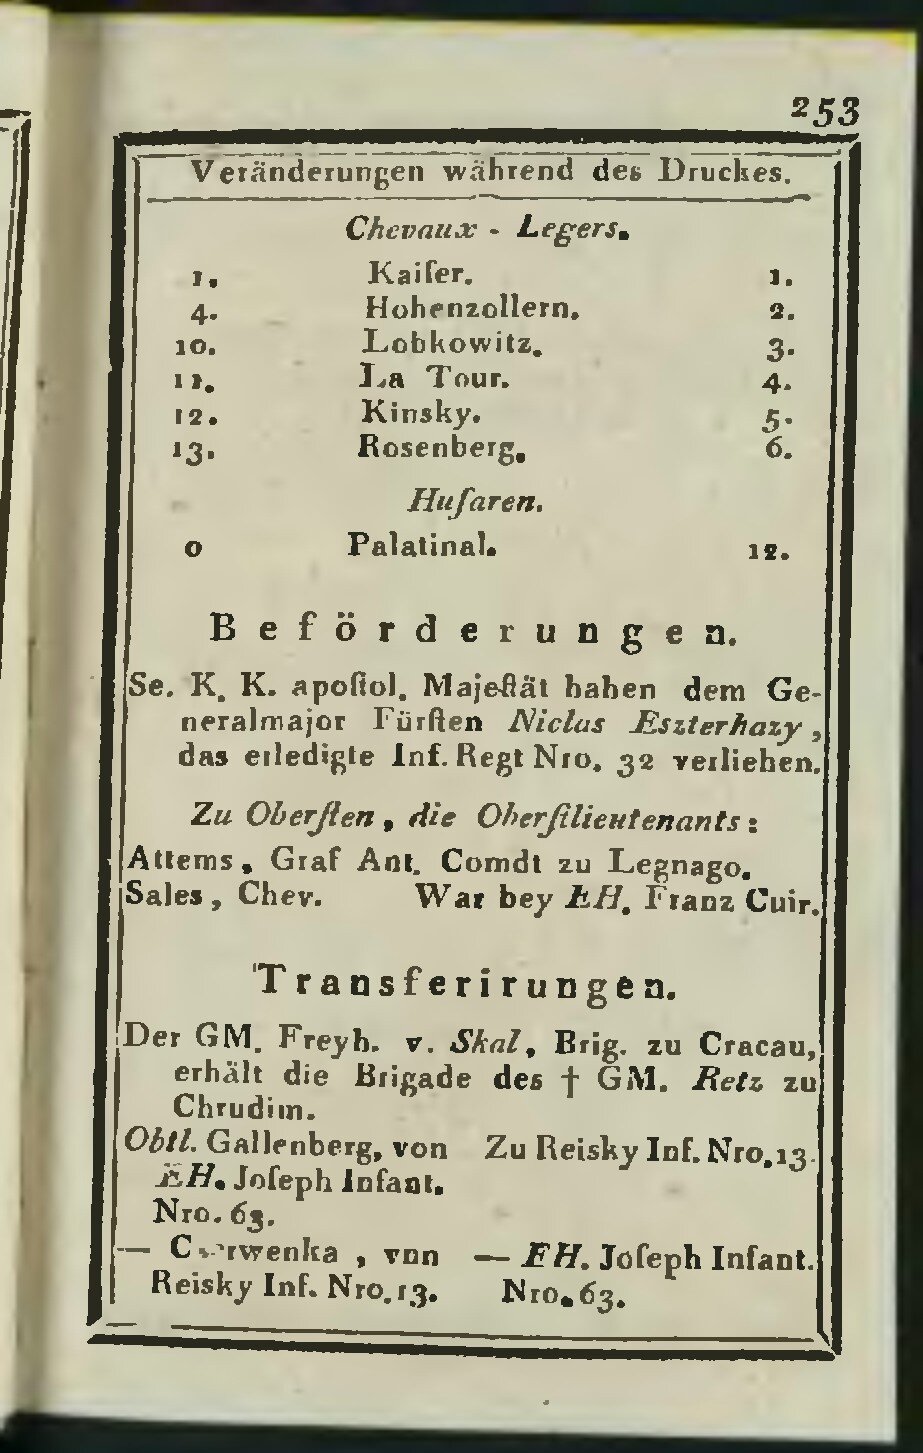 253
Veränderungen während des Druckes.
Chevaux - Legers.
1. Kaiſer. 1.
4. Hohenzollern. 2.
10. Lobkowitz. 3.
11. La Tour. 4.
12. Kinsky. 5.
13. Rosenberg. 6.
Huſaren.
0 Palatinal. 12.
Beförderungen.
Se. K. K. apoſtol. Majeſtät haben dem Ge-
neralmajor Fürſten Niclas Eszterhazy,
das erledigte Inf. Regt Nro. 32 verliehen.
Zu Oberſten, die Oberſtlieutenants:
Attems, Graf Ant. Comdt zu Legnago.
Sales, Chev. War bey EH. Franz Cuir.
Transferirungen.
Der GM. Freyh. v. Skal, Brig. zu Cracau,
erhält die Brigade des † GM. Retz zu
Chrudim.
Obtl. Gallenberg, von Zu Reisky Inf. Nro. 13.
EH. Joſeph Infant.
Nro. 63.
— von — EH. Joſeph Infant.
Reisky Inf. Nro. 13. Nro. 63.